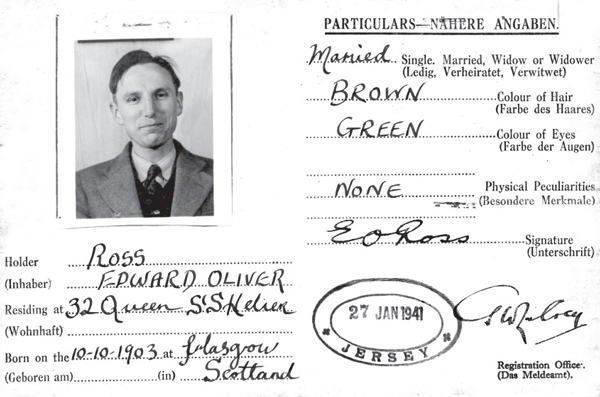 PARTICULARS—NÄHERE ANGABEN.
Married Single, Married, Widow or Widower
(Ledig, Verheiratet, Verwitwet)
BROWN Colour of Hair
(Farbe des Haares)
GREEN Colour of Eyes
(Farbe der Augen)
NONE Physical Peculiarities
(Besondere Merkmale)
E O Ross Signature
(Unterschrift)
Holder ROSS
(Inhaber) EDWARD OLIVER
Residing at 32 Queen St St Helier
(Wohnhaft)
Born on the 10-10-1903 at Glasgow
(Geboren am) (in) Scotland
27 JAN 1941
JERSEY
Registration Office.
(Das Meldeamt).